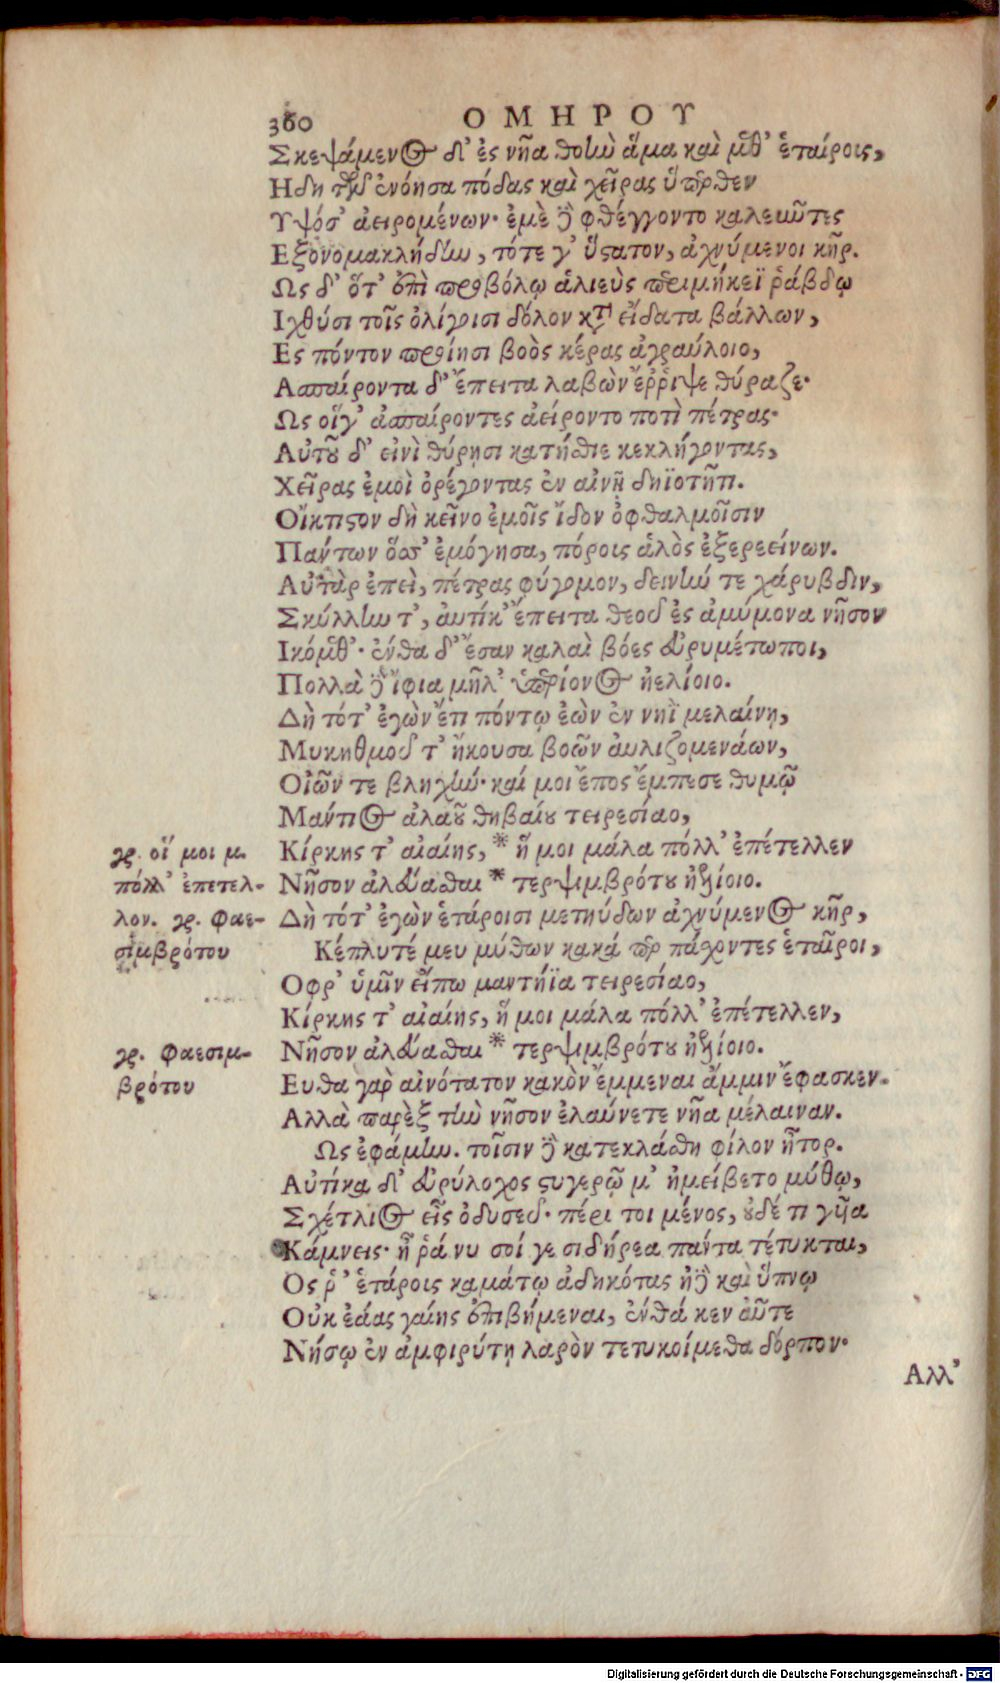 360 ΟΜΗΡΟΥ
Σκεψάμενος δ' ἐς νῆα θοὴν ἅμα καὶ μεθ' ἑταίροις,
Ηδη τῶν ἐνόησα πόδας καὶ χεῖρας ὕπερθεν
Υψόσ' ἀειρομένων· ἐμὲ δὲ φθέγγοντο καλεῦντες
Εξονομακλήδην, τότε γ' ὕστατον, ἀχνύμενοι κῆρ.
Ως δ' ὅτ' ἐπὶ προβόλῳ ἁλιεὺς περιμήκεϊ ῥάβδῳ
Ιχθύσι τοῖς ὀλίγοισι δόλον κατ' εἴδατα βάλλων,
Ες πόντον προΐησι βοὸς κέρας ἀγραύλοιο,
Ασπαίροντα δ' ἔπειτα λαβὼν ἔῤῥιψε θύραζε·
Ως οἵγ' ἀσπαίροντες ἀείροντο ποτὶ πέτρας·
Αὐτοῦ δ' εἰνὶ θύρῃσι κατήσθιε κεκλήγοντας,
Χεῖρας ἐμοὶ ὀρέγοντας ἐν αἰνῇ δηϊοτῆτι.
Οἴκτιστον δὴ κεῖνο ἐμοῖς ἴδον ὀφθαλμοῖσιν
Πάντων ὅσσ' ἐμόγησα, πόροις ἁλὸς ἐξερεείνων.
Αὐτὰρ ἐπεὶ, πέτρας φύγομεν, δεινήν τε χάρυβδιν,
Σκύλλην τ', αὐτίκ' ἔπειτα θεοῦ ἐς ἀμύμονα νῆσον
Ικόμεθ'· ἔνθα δ' ἔσαν καλαὶ βόες εὐρυμέτωποι,
Πολλὰ δὲ ἴφια μῆλ' ὑπερίονος ἠελίοιο.
Δὴ τότ' ἐγὼν ἔτι πόντῳ ἐὼν ἐν νηῒ μελαίνῃ,
Μυκηθμοῦ τ' ἤκουσα βοῶν αὐλιζομενάων,
Οἰῶν τε βληχήν· καί μοι ἔπος ἔμπεσε θυμῷ
Μάντιος ἀλαοῦ θηβαίου τειρεσίαο,
Κίρκης τ' αἰαίης, * ἥ μοι μάλα πόλλ' ἐπέτελλεν
γρ. οἵ μοι μ.
πόλλ' ἐπετέλ-
λον. γρ. φαε-
σιμβρότου
Νῆσον ἀλεύασθαι * τερψιμβρότου ἠελίοιο.
Δὴ τότ' ἐγὼν ἑτάροισι μετηύδων ἀχνύμενος κῆρ,
Κέκλυτέ μευ μύθων κακά περ πάχοντες ἑταῖροι,
Οφρ' ὑμῖν εἴπω μαντήϊα τειρεσίαο,
Κίρκης τ' αἰαίης, ἥ μοι μάλα πόλλ' ἐπέτελλεν,
Νῆσον ἀλεύασθαι * τερψιμβρότου ἠελίοιο.
γρ. φαεσιμ-
βρότου
Ενθα γὰρ αἰνότατον κακὸν ἔμμεναι ἄμμιν ἔφασκεν.
Αλλὰ παρὲξ τὴν νῆσον ἐλαύνετε νῆα μέλαιναν.
Ως ἐφάμην. τοῖσιν δὲ κατεκλάσθη φίλον ἦτορ.
Αὐτίκα δ' εὐρύλοχος στυγερῷ μ' ἠμείβετο μύθῳ,
Σχέτλιος εἶς ὀδυσεῦ· πέρι τοι μένος, οὐδέ τι γυῖα
Κάμνεις· ἦ ῥά νυ σοί γε σιδήρεα πάντα τέτυκται,
Ος ῥ' ἑτάροις καμάτῳ ἀδηκότας ἠδὲ καὶ ὕπνῳ
Οὐκ ἐάας γαίης ἐπιβήμεναι, ἔνθά κεν αὖτε
Νήσῳ ἐν ἀμφιρύτῃ λαρὸν τετυκοίμεθα δόρπον·
Αλλ'
Digitalisierung gefördert durch die Deutsche Forschungsgemeinschaft - DFG